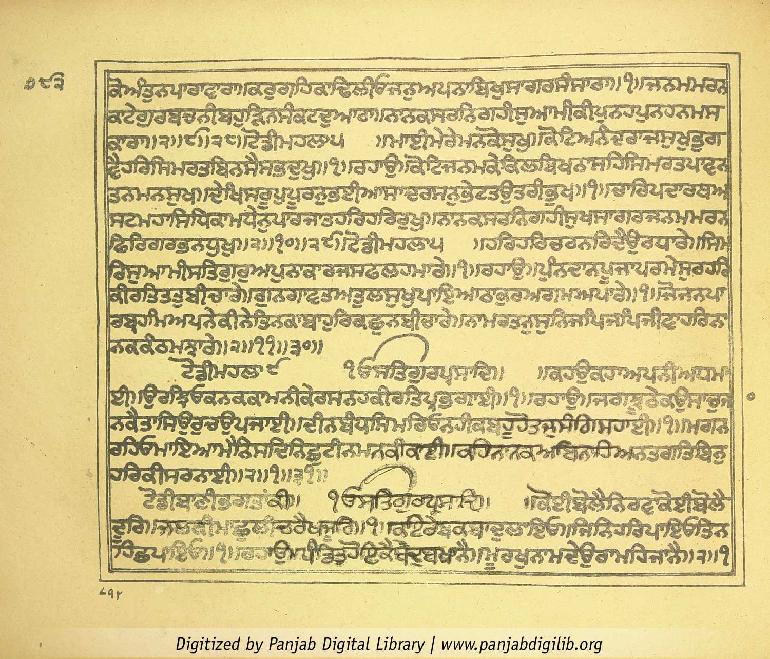 ੭੧੮
ਕੋਅੰਤੁਨਪਾਰਾਵਾਰਾ॥ਕਰੁਗਹਿਕਾਢਿਲੀਓਜਨੁਅਪੁਨਾਬਿਖੁਸਾਗਰਸੰਸਾਰਾ॥੧॥ਜਨਮਮਰਨ
ਕਟੇਗੁਰਬਚਨੀਬਹੁੜਿਨਸੰਕਟਦੁਆਰਾ॥ਨਾਨਕਸਰਨਿਗਹੀਸੁਆਮੀਕੀਪੁਨਹਪੁਨਹਨਮਸ
ਕਾਰਾ॥੨॥੯॥੨੮॥ਟੋਡੀਮਹਲਾ੫ ॥ਮਾਈਮੇਰੇਮਨਕੋਸੁਖੁ॥ਕੋਟਿਅਨੰਦਰਾਜਸੁਖੁਭੁਗ
ਵੈਹਰਿਸਿਮਰਤਬਿਨਸੈਸਭਦੁਖੁ॥੧॥ਰਹਾਉ॥ਕੋਟਿਜਨਮਕੇਕਿਲਬਿਖਨਾਸਹਿਸਿਮਰਤਪਾਵਨ
ਤਨਮਨਸੁਖ॥ਦੇਖਿਸਰੂਪੁਪੂਰਨੁਭਈਆਸਾਦਰਸਨੁਭੇਟਤਉਤਰੀਭੁਖ॥੧॥ਚਾਰਿਪਦਾਰਥਅ
ਸਟਮਹਾਸਿਧਿਕਾਮਧੇਨੁਪਾਰਜਾਤਹਰਿਹਰਿਰੁਖੁ॥ਨਾਨਕਸਰਨਿਗਹੀਸੁਖਸਾਗਰਜਨਮਮਰਨ
ਫਿਰਿਗਰਭਨਧੁਖੁ॥੨॥੧੦॥੨੯॥ਟੋਡੀਮਹਲਾ੫ ॥ਹਰਿਹਰਿਚਰਨਰਿਦੈਉਰਧਾਰੇ॥ਸਿਮ
ਰਿਸੁਆਮੀਸਤਿਗੁਰੁਅਪੁਨਾਕਾਰਜਸਫਲਹਮਾਰੇ॥੧॥ਰਹਾਉ॥ਪੁੰਨਦਾਨਪੂਜਾਪਰਮੇਸੁਰਹਰਿ
ਕੀਰਤਿਤਤੁਬੀਚਾਰੇ॥ਗੁਨਗਾਵਤਅਤੁਲਸੁਖੁਪਾਇਆਠਾਕੁਰਅਗਮਅਪਾਰੇ॥੧॥ਜੋਜਨਪਾ
ਰਬ੍ਰਹਮਿਅਪਨੇਕੀਨੇਤਿਨਕਾਬਾਹੁਰਿਕਛੁਨਬੀਚਾਰੇ॥ਨਾਮਰਤਨੁਸੁਨਿਜਪਿਜਪਿਜੀਵਾਹਰਿਨਾ
ਨਕਕੰਠਮਝਾਰੇ॥੨॥੧੧॥੩੦॥
ਟੋਡੀਮਹਲਾ੯ ੧ਓਸਤਿਗੁਰਪ੍ਰਸਾਦਿ॥ ॥ਕਹਉਕਹਾਅਪਨੀਅਧਮਾ
ਈ॥ਉਰਝਿਓਕਨਕਕਾਮਨੀਕੇਰਸਨਹਕੀਰਤਿਪ੍ਰਭਗਾਈ॥੧॥ਰਹਾਉ॥ਜਗਝੂਠੇਕਉਸਾਚੁਜਾ
ਨਕੈਤਾਸਿਉਰੁਚਉਪਜਾਈ॥ਦੀਨਬੰਧਸਿਮਰਿਓਨਹੀਕਬਹੂਹੋਤਜੁਸੰਗਿਸਹਾਈ॥੧॥ਮਗਨ
ਰਹਿਓਮਾਇਆਮੈਨਿਸਦਿਨਿਛੁਟੀਨਮਨਕੀਕਾਈ॥ਕਹਿਨਾਨਕਅਬਨਾਹਿਅਨਤਗਤਿਬਿਨੁ
ਹਰਿਕੀਸਰਨਾਈ॥੨॥੧॥੩੧॥
ਟੋਡੀਬਾਣੀਭਗਤਾਂਕੀ॥ ੧ਓਸਤਿਗੁਰਪ੍ਰਸਾਦਿ॥ ॥ਕੋਈਬੋਲੈਨਿਰਵਾਕੋਈਬੋਲੈ
ਦੂਰਿ॥ਜਲਕੀਮਾਛੁਲੀਚਰੈਖਜੂਰਿ॥੧॥ਕਾਂਇਰੇਬਕਬਾਦੁਲਾਇਓ॥ਜਿਨਿਹਰਿਪਾਇਓਤਿਨ
ਹਿਛਪਾਇਓ॥੧॥ਰਹਾਉ॥ਪੰਡਿਤੁਹੋਇਕੈਬੇਦੁਬਖਾਨੈ॥ਮੂਰਖੁਨਾਮਦੇਉਰਾਮਹਿਜਾਨੈ॥੨॥੧
Digitized by Panjab Digital Library | www.panjabdigilib.org